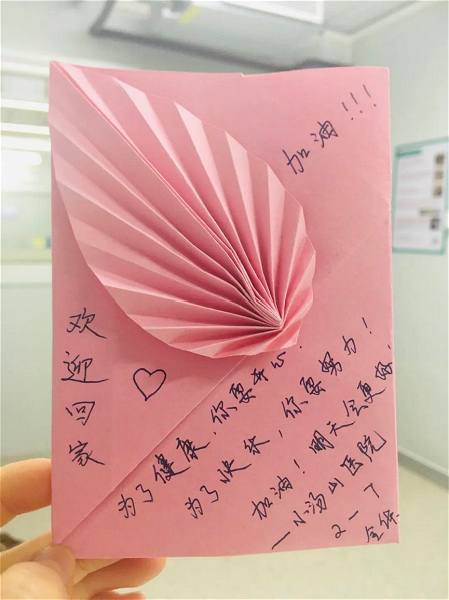 加油!!!
欢迎回家
为了健康,你要开心!
为了快乐,你要努力!
加油!明天会更好.
一小汤山医院
2-7
全体